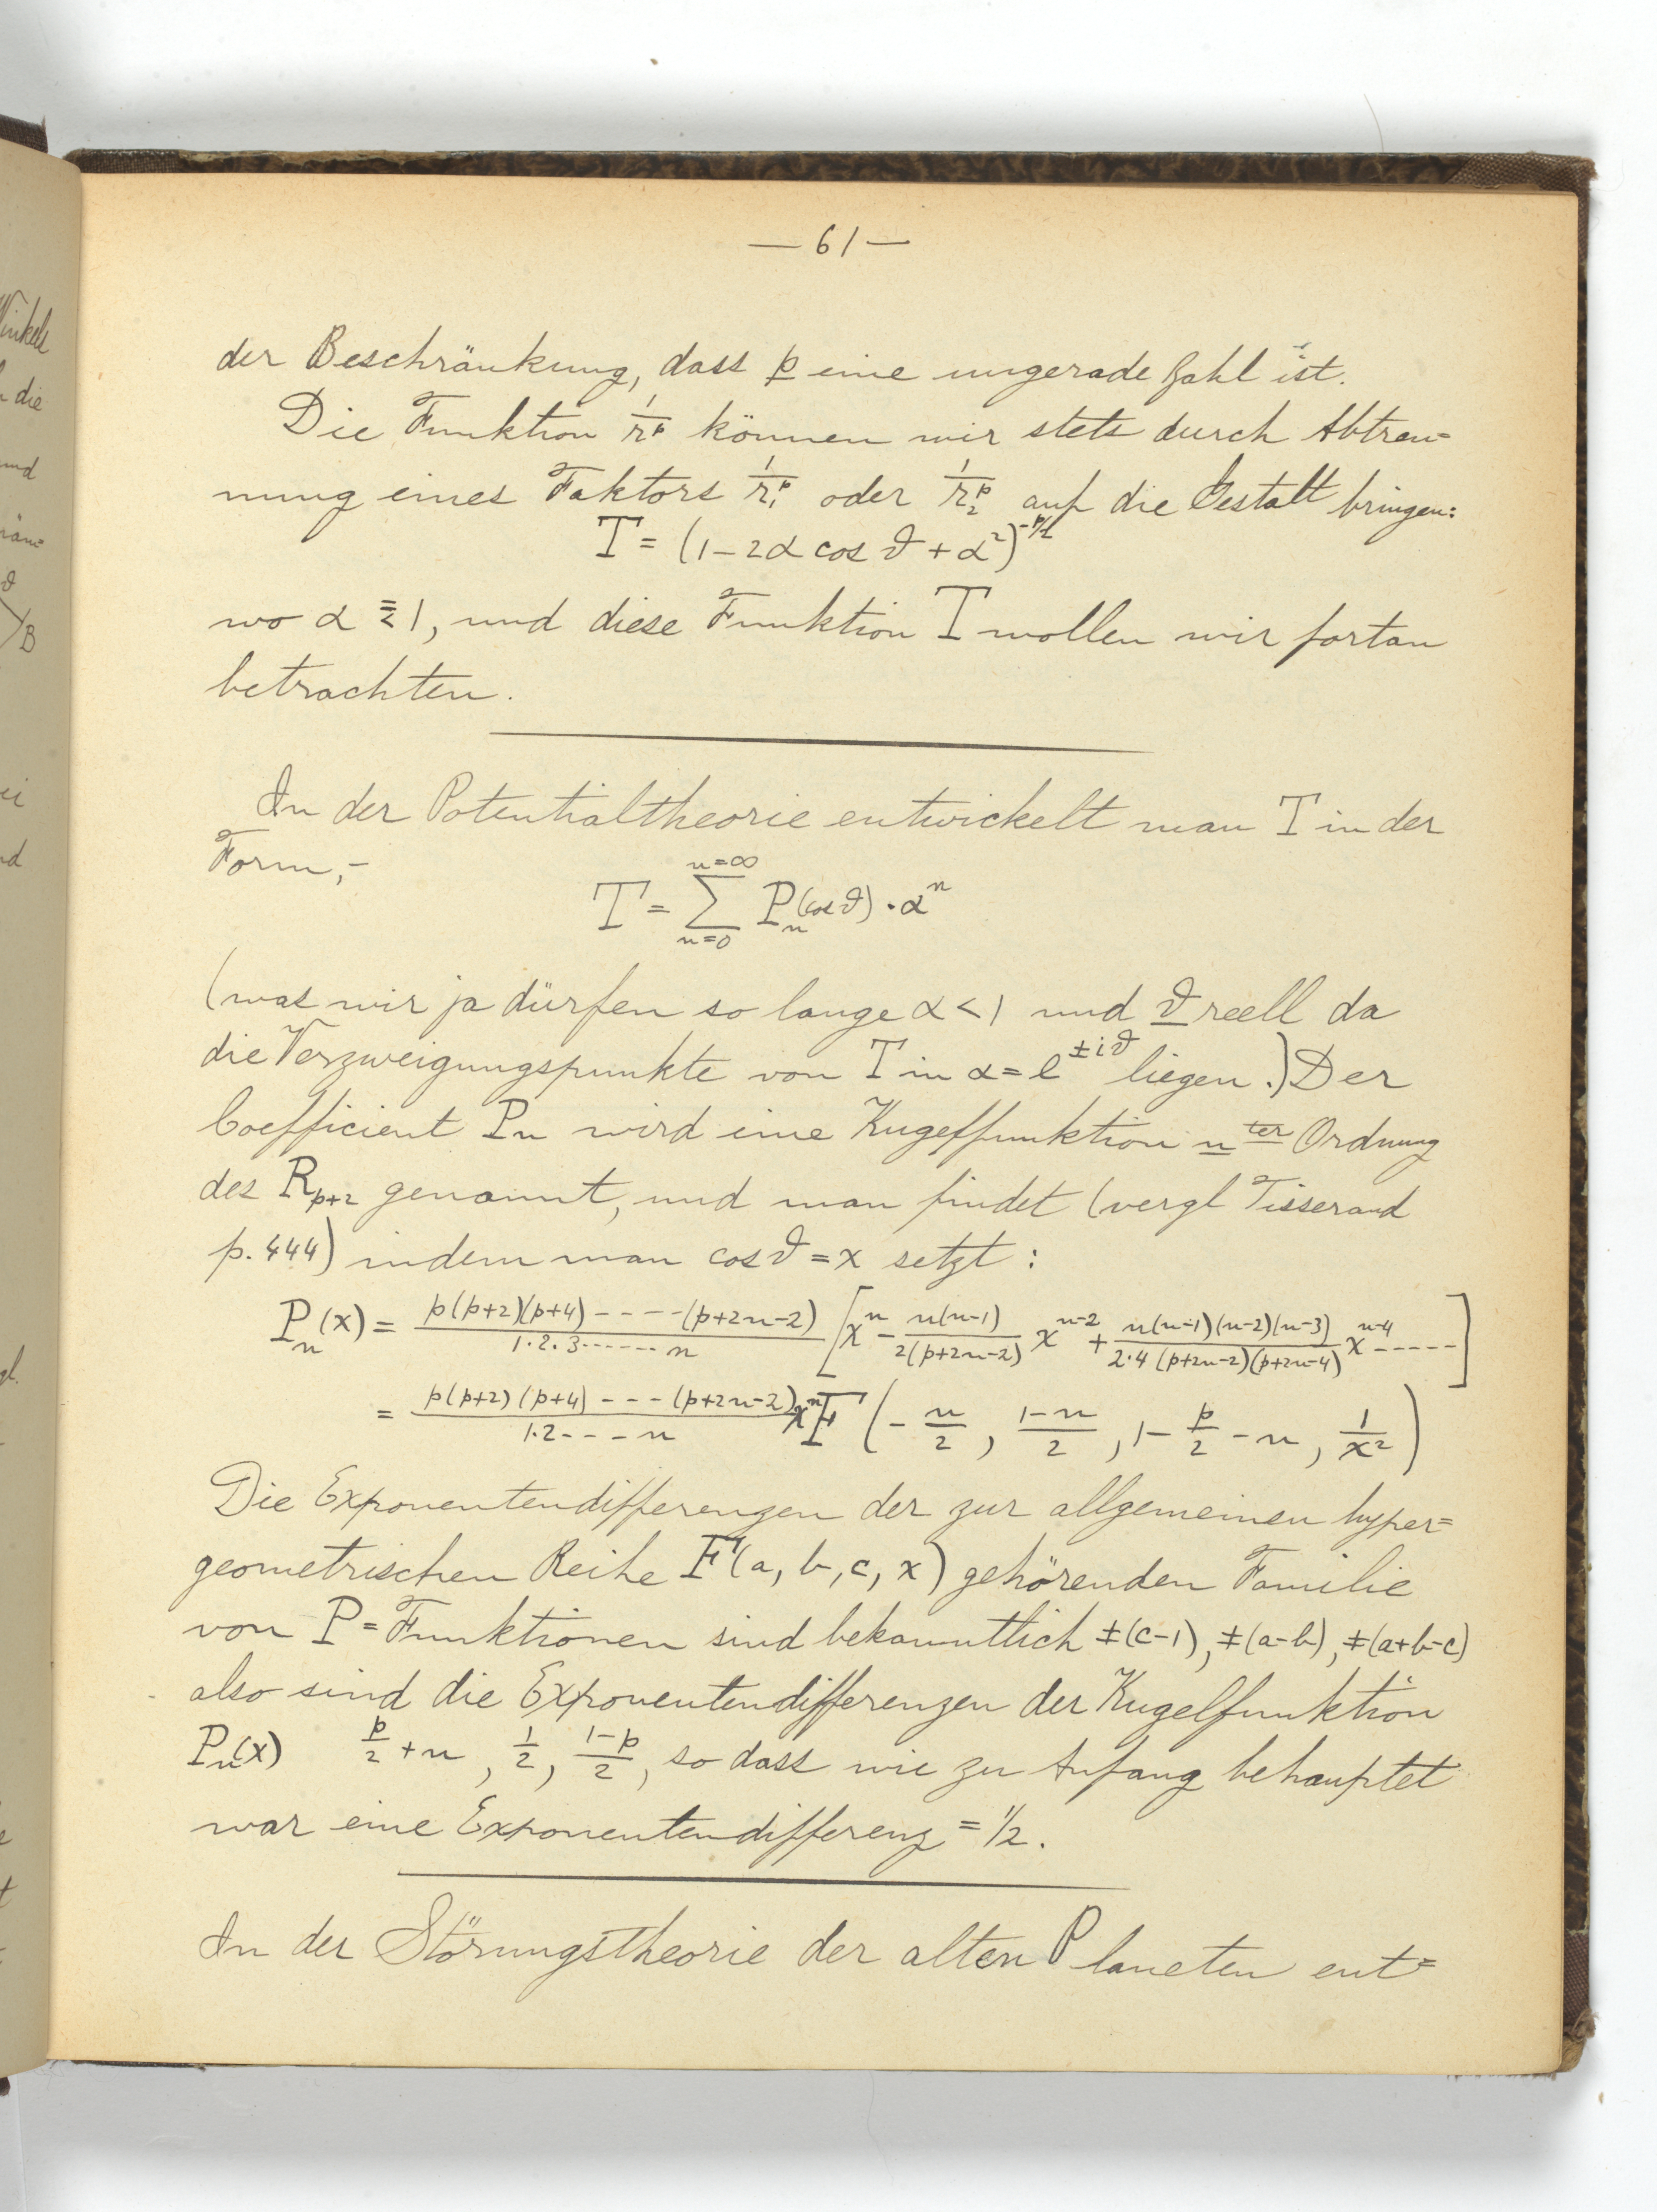 — 61 —
der Beschränkung, dass p eine ungerade Zahl ist.
Die Funktion 1/r^p können wir stets durch Abtren=
nung eines Faktors 1/r_1^p oder 1/r_2^p auf die Gestalt bringen:
T = (1 - 2α cos ϑ + α²)^{-p/2}
wo α ≦ 1, und diese Funktion T wollen wir fortan
betrachten.
In der Potentialtheorie entwickelt man T in der
Form,-
T = Σ_{n=0}^{n=∞} P_n(cos ϑ) · α^n
(was wir ja dürfen so lange α < 1 und ϑ reell da
die Verzweigungspunkte von T in α = e^{±iϑ} liegen.) Der
Coefficient P_n wird eine Kugelfunktion n^{ter} Ordnung
des R_{p+2} genannt, und man findet (vergl Tisserand
p. 444) indem man cos ϑ = x setzt :
P_n(x) = p(p+2)(p+4)-----(p+2n-2) / 1·2·3······n [x^n - n(n-1) / 2(p+2n-2) x^{n-2} + n(n-1)(n-2)(n-3) / 2·4(p+2n-2)(p+2n-4) x^{n-4} -----]
= p(p+2)(p+4)---(p+2n-2) / 1·2---n x^n F(-n/2, 1-n/2, 1-p/2-n, 1/x²)
Die Exponentendifferenzen der zur allgemeinen hyper=
geometrischen Reihe F(a, b, c, x) gehörenden Familie
von P=Funktionen sind bekanntlich ±(c-1), ±(a-b), ±(a+b-c)
also sind die Exponentendifferenzen der Kugelfunktion
P_n(x) p/2 + n, 1/2, 1-p/2, so dass wie zu Anfang behauptet
war eine Exponentendifferenz = 1/2.
In der Störungstheorie der alten Planeten ent=